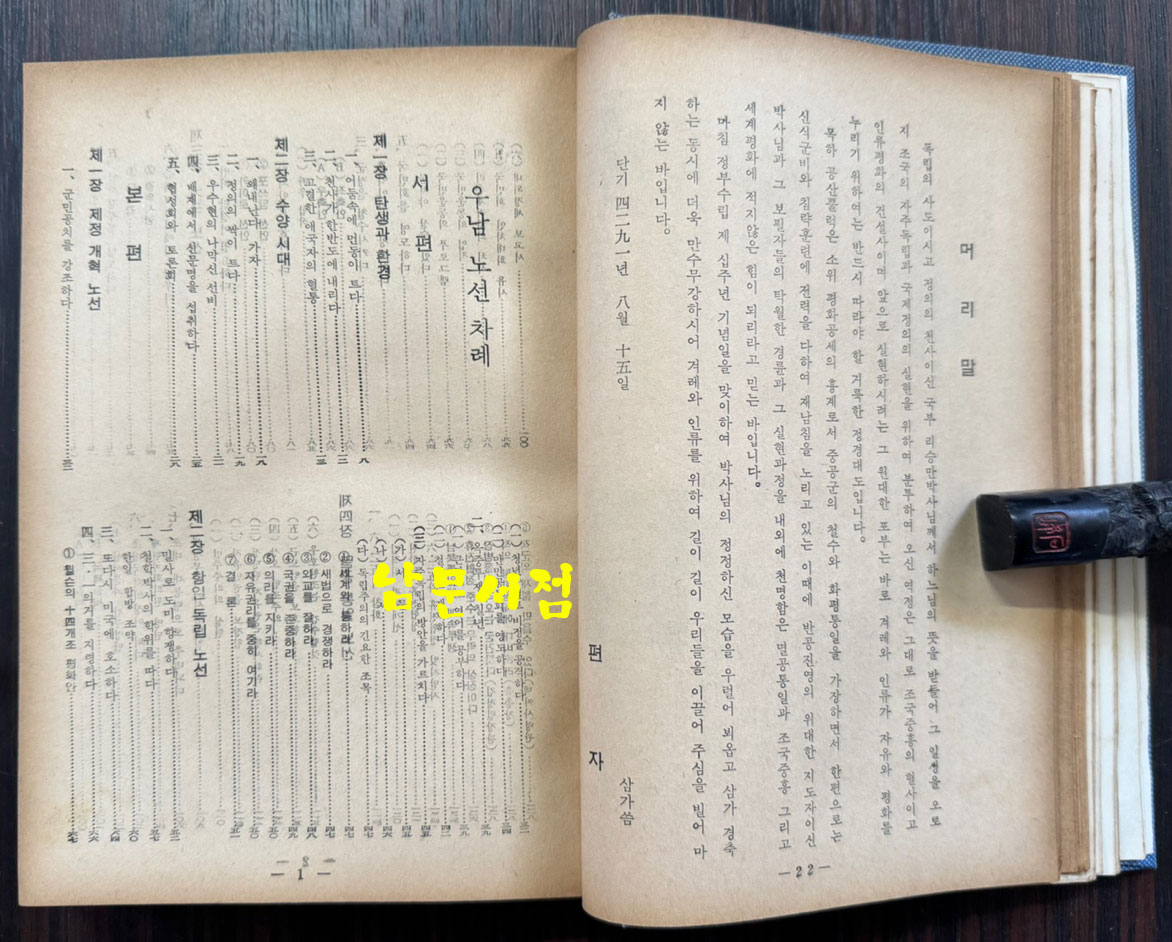 머리말
독립의 사도이시고 정의의 천사이신 국부 리승만박사님께서 하느님의 뜻을 받들어 그 일생을 오로
지 조국의 자주독립과 국제정의의 실현을 위하여 분투하여 오신 역정은 그대로 조국중흥의 혈사이고
인류평화의 건설사이며 앞으로 실현하시려는 그 원대한 포부는 바로 겨레와 인류가 자유와 평화를
누리기 위하여는 반드시 따라야 할 거룩한 정경대도입니다.
목하 공산풀럭은 소위 평화공세의 흉계로서 중공군의 철수와 화평통일을 가장하면서 한편으로는
신식군비와 침략훈련에 전력을 다하여 재남침을 노리고 있는 이때에 반공진영의 위대한 지도자이신
박사님과 그 보필자들의 탁월한 경륜과 그 실현과정을 내외에 천명함은 멸공통일과 조국중흥 그리고
세계평화에 적지않은 힘이 되리라고 믿는 바입니다.
마침 정부수립 제 십주년 기념일을 맞이하여 박사님의 정정하신 모습을 우럴어 뵈옵고 삼가 경축
하는 동시에 더욱 만수무강하시어 겨레와 인류를 위하여 길이 길이 우리들을 이끌어 주심을 빌어 마
지 않는 바입니다.
단기 四二九一년 八월 十五일
편 자 삼가씀
—22—
우남 노선 차례
서 편
제一장 탄생과 환경
一、어둠속에 먼동이 트다
二、천사가 한반도에 내리다
三、고결한 애국자의 혈통
제二장 수양시대
一、왜내난다 가자
二、정의의 싹이 트다
三、우수현의 나막신 선비
四、배재에서 신문명을 섭취하다
五、협성회와 토론회
본 편
제一장 제정 개혁 노선
一、군민공치를 강조하다
(다) 독립주의의 긴요한 조목
① 세계와 통하라
② 새법으로 경쟁하라
③ 외교를 잘하라
④ 국권을 존중하라
⑤ 의리를 지키라
⑥ 자유권리를 중히 여기라
⑦ 결 론
제二장 항일 독립 노선
一、밀사로 도미 항쟁하다
二、철학박사의 학위를 따다
三、또다시 미국에 호소하다
四、三·一의거를 지령하다
① 윌슨의 十四개조 평화안
— 1 —
남문서점